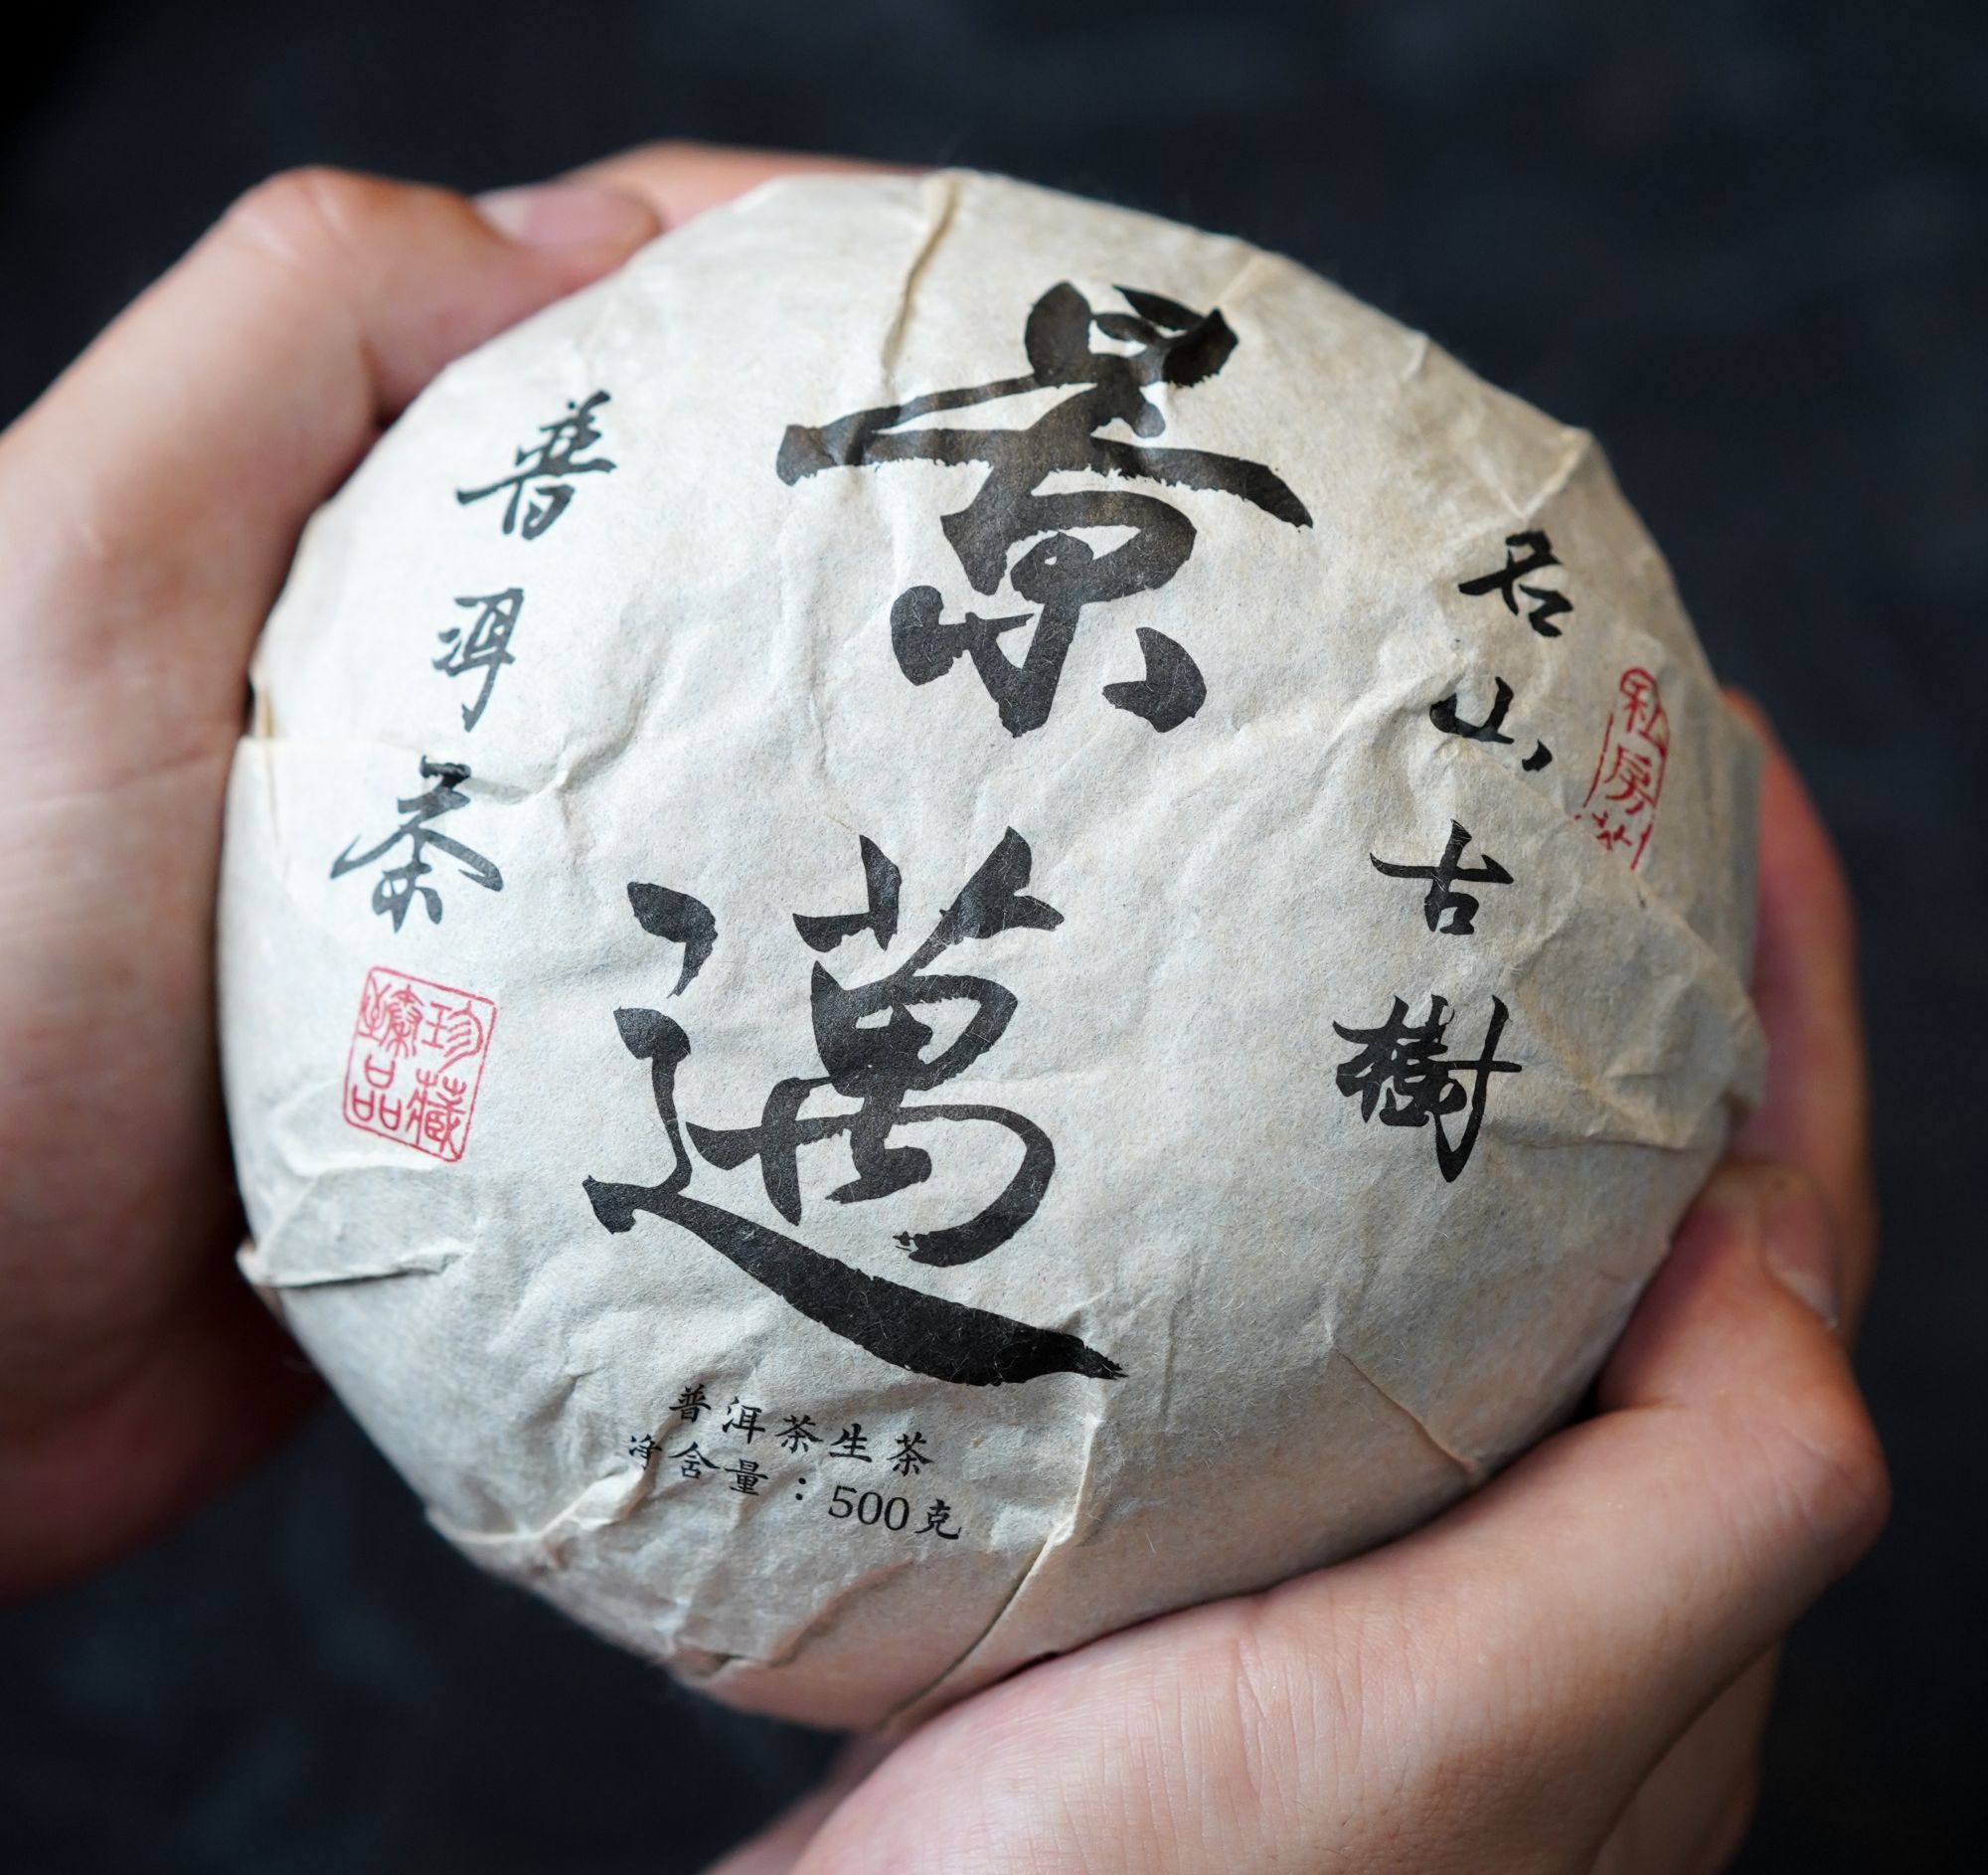 景邁
名山古樹
私房茶
普洱茶
珍藏臻品
普洱茶生茶
净含量：500克